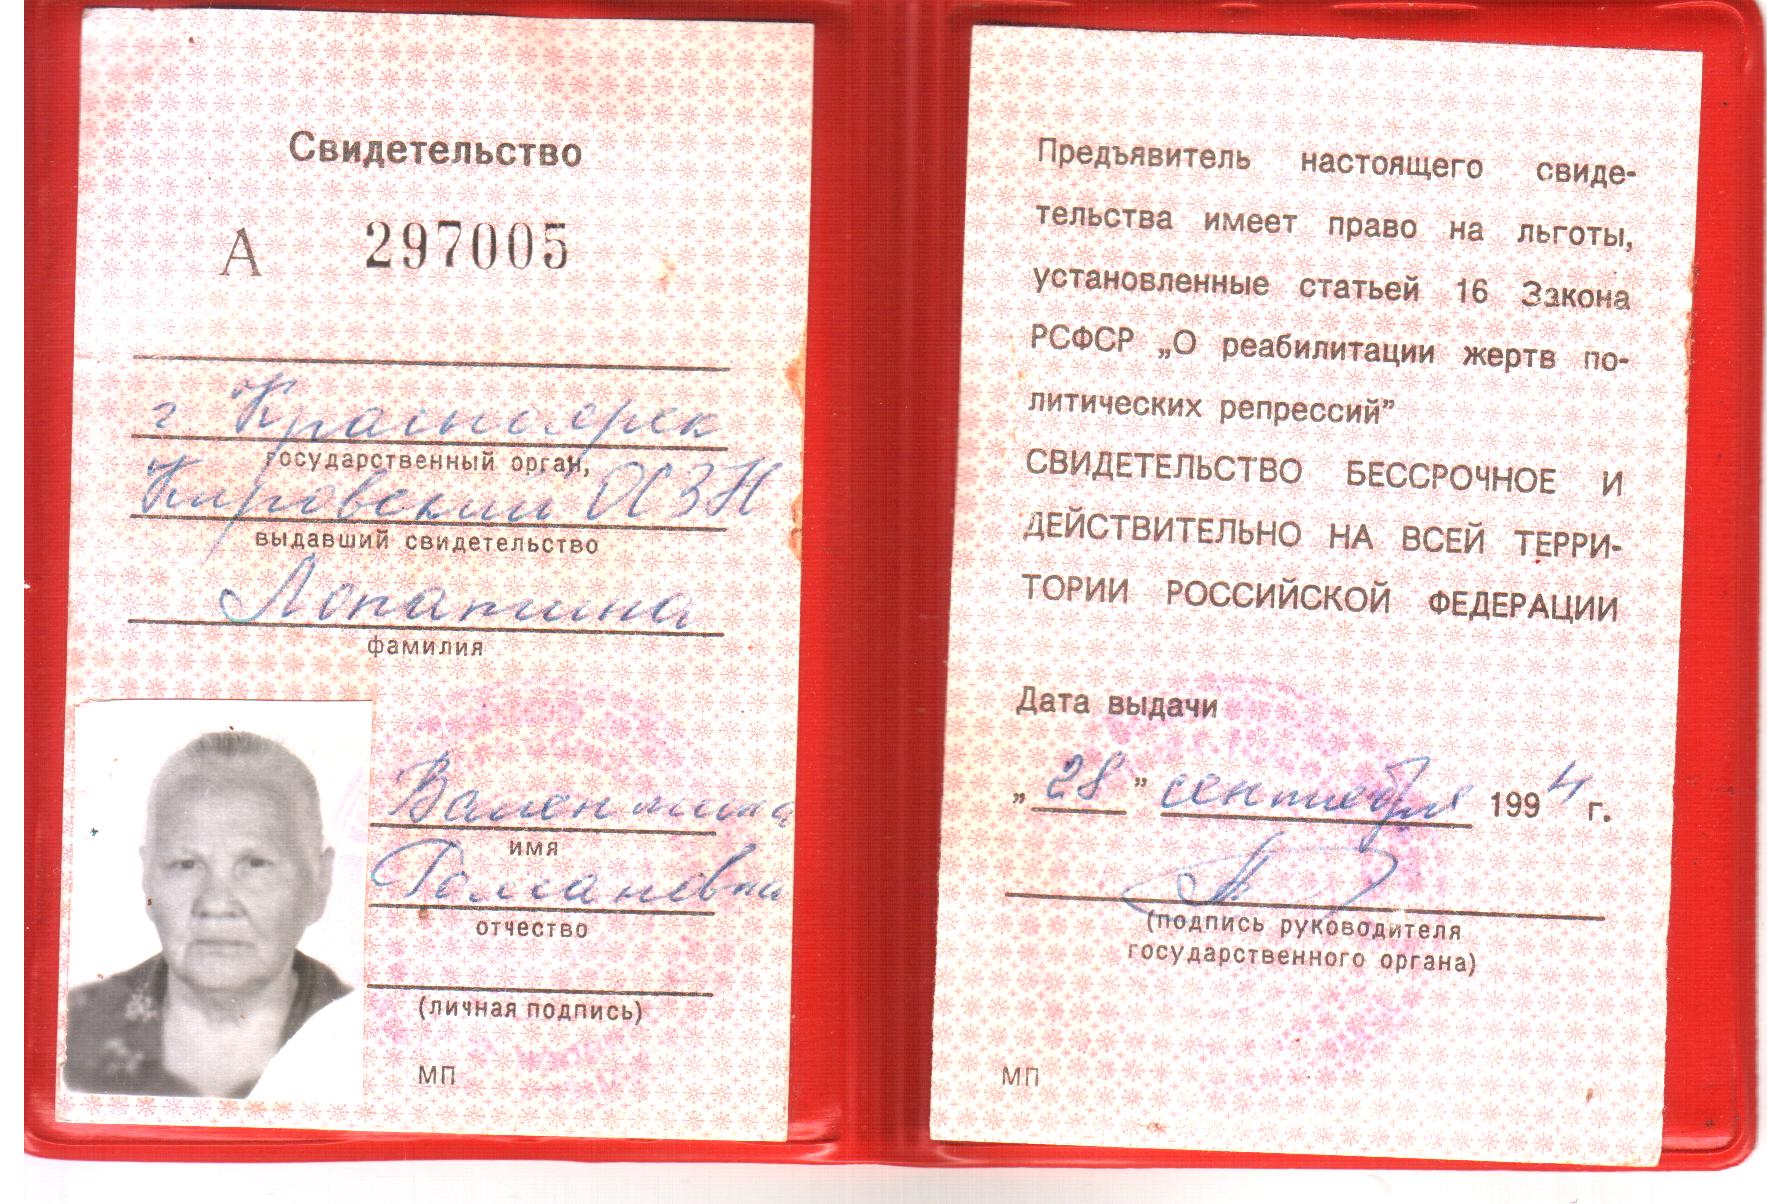 Свидетельство
А 297005
г Красноярск
государственный орган,
Кировский ОСЗН
выдавший свидетельство
Лопатина
фамилия
Валентина
имя
Романовна
отчество
(личная подпись)
МП
Предъявитель настоящего свиде-
тельства имеет право на льготы,
установленные статьей 16 Закона
РСФСР „О реабилитации жертв по-
литических репрессий”
СВИДЕТЕЛЬСТВО БЕССРОЧНОЕ И
ДЕЙСТВИТЕЛЬНО НА ВСЕЙ ТЕРРИ-
ТОРИИ РОССИЙСКОЙ ФЕДЕРАЦИИ
Дата выдачи
„28” сентября 1994 г.
(подпись руководителя
государственного органа)
МП